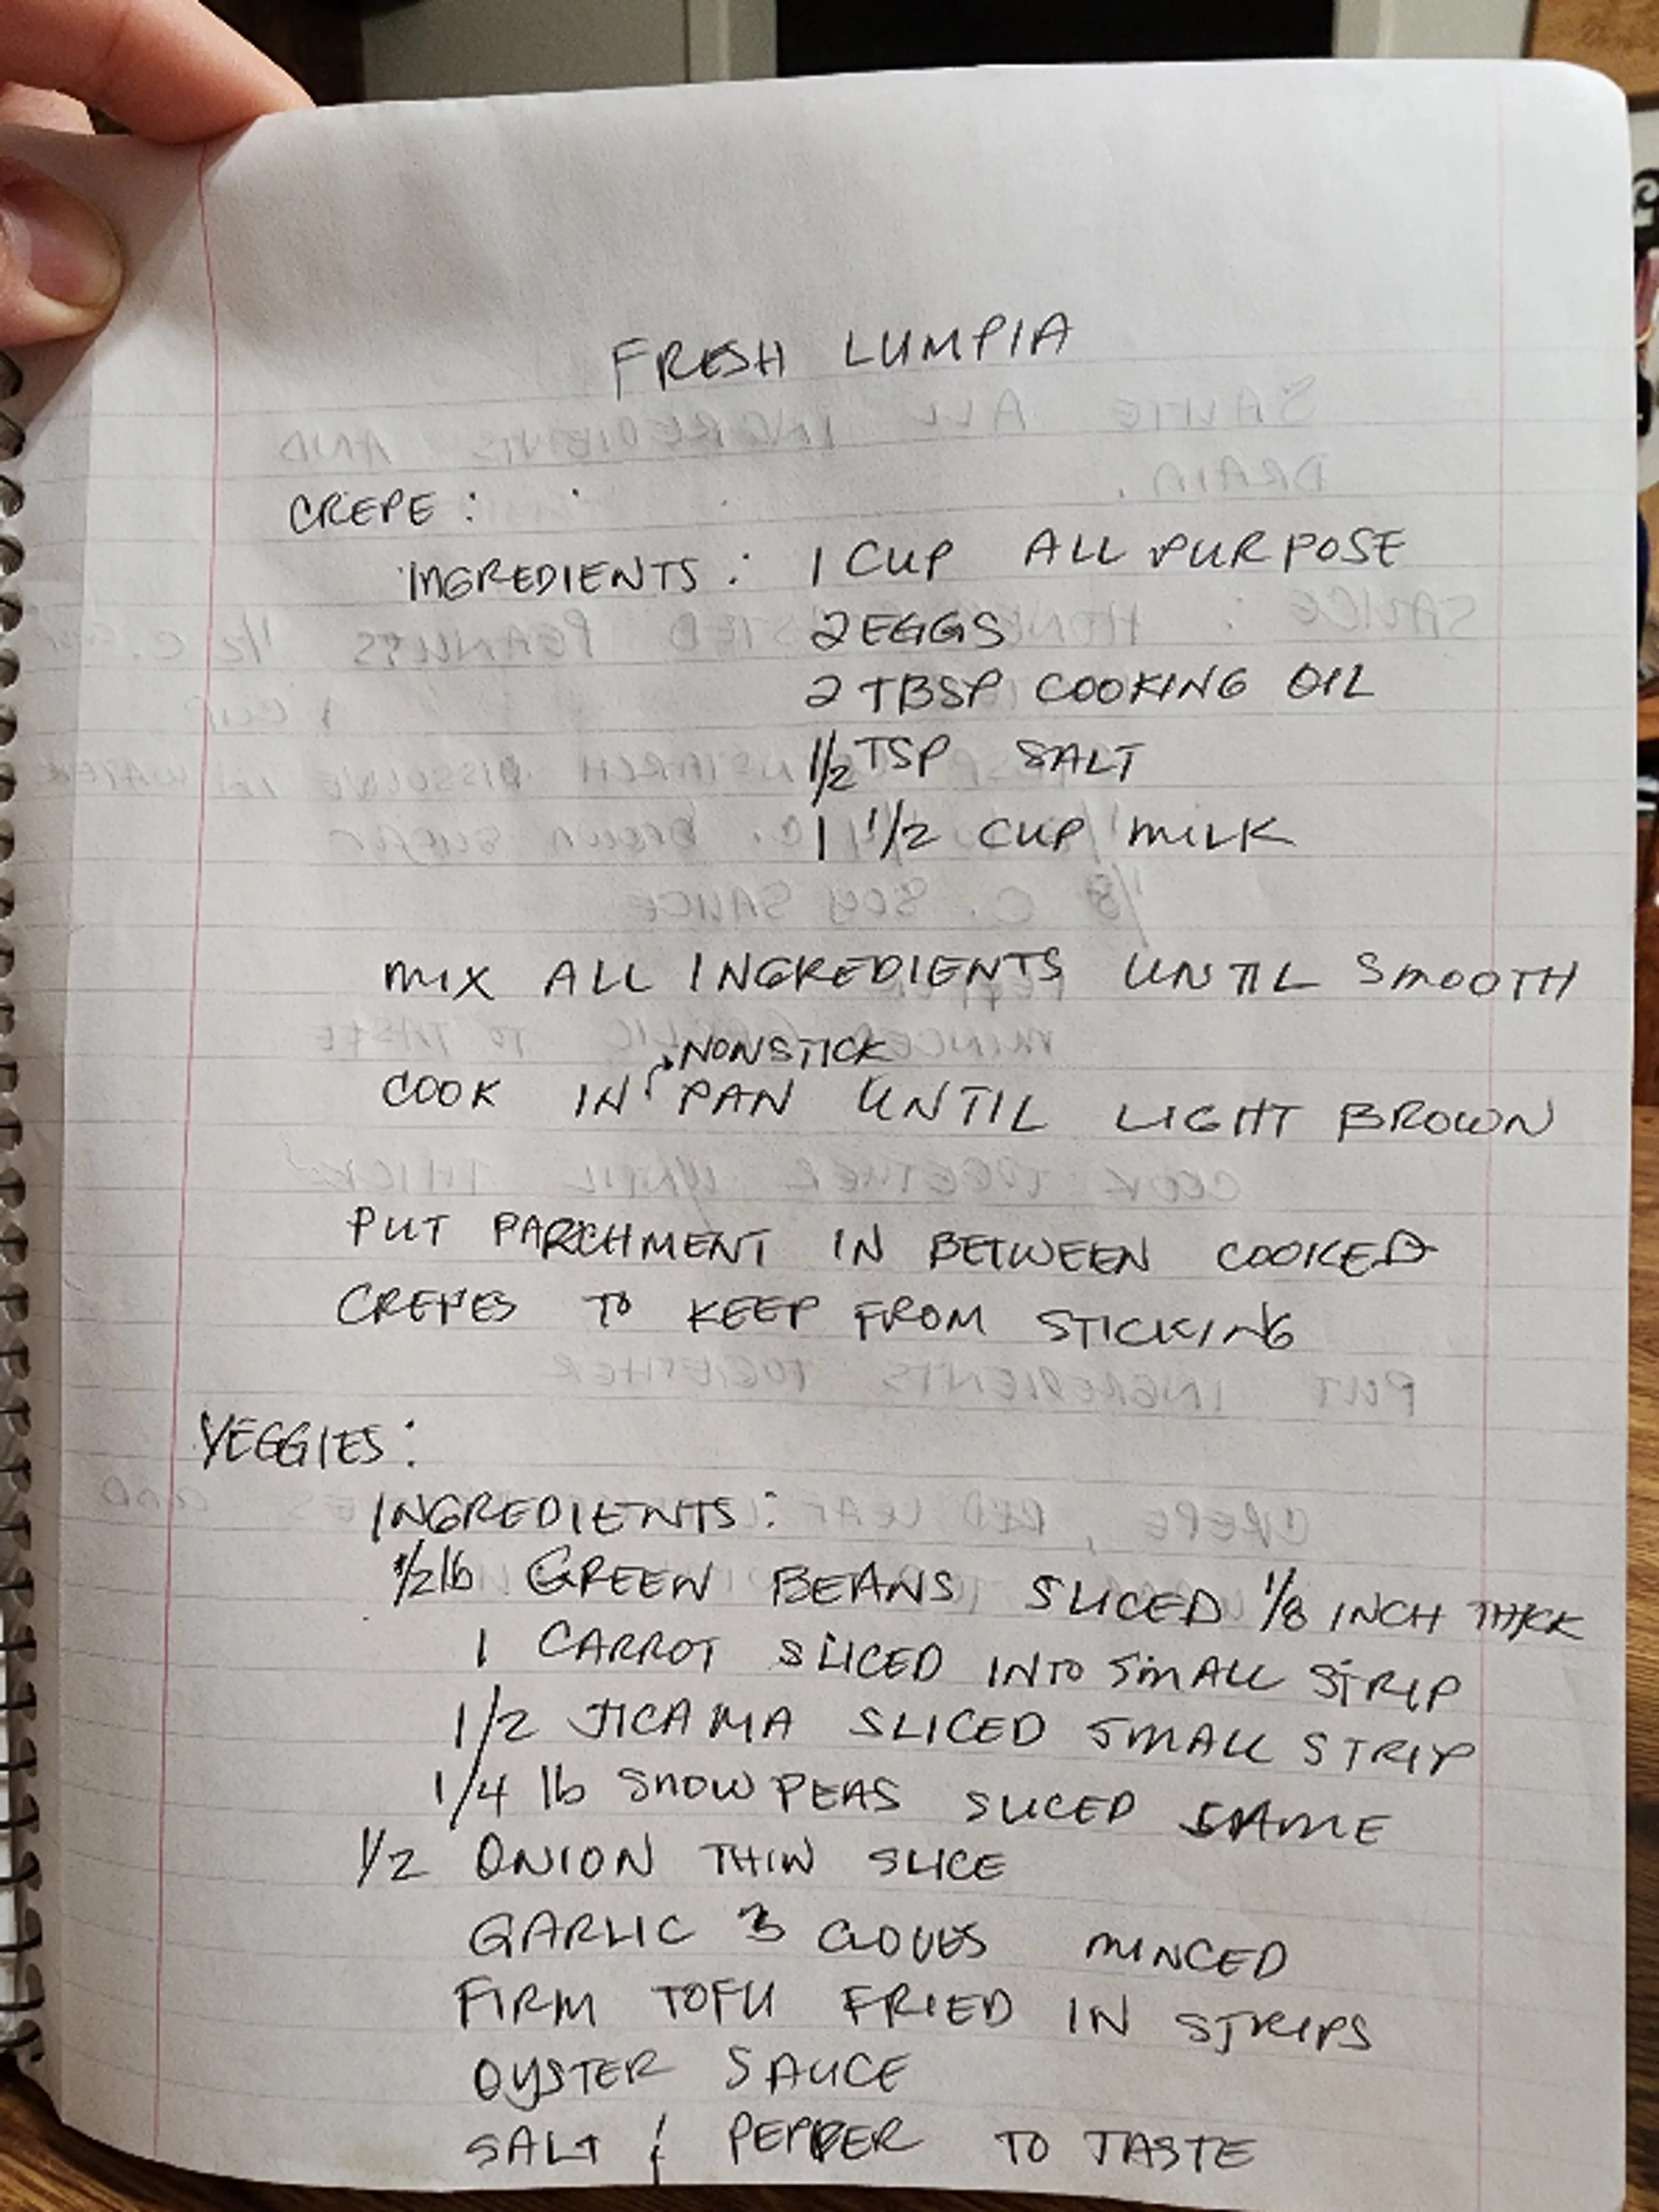 FRESH LUMPIA
CREPE:
INGREDIENTS: 1 CUP ALL PURPOSE
2 EGGS
2 TBSP COOKING OIL
1/2 TSP SALT
1 1/2 CUP MILK
MIX ALL INGREDIENTS UNTIL SMOOTH
NONSTICK
COOK IN PAN UNTIL LIGHT BROWN
PUT PARCHMENT IN BETWEEN COOKED
CREPES TO KEEP FROM STICKING
VEGGIES:
INGREDIENTS:
1/2 lb GREEN BEANS SLICED 1/8 INCH THICK
1 CARROT SLICED INTO SMALL STRIP
1/2 JICAMA SLICED SMALL STRIP
1/4 lb SNOW PEAS SLICED SAME
1/2 ONION THIN SLICE
GARLIC 3 CLOVES MINCED
FIRM TOFU FRIED IN STRIPS
OYSTER SAUCE
SALT & PEPPER TO TASTE